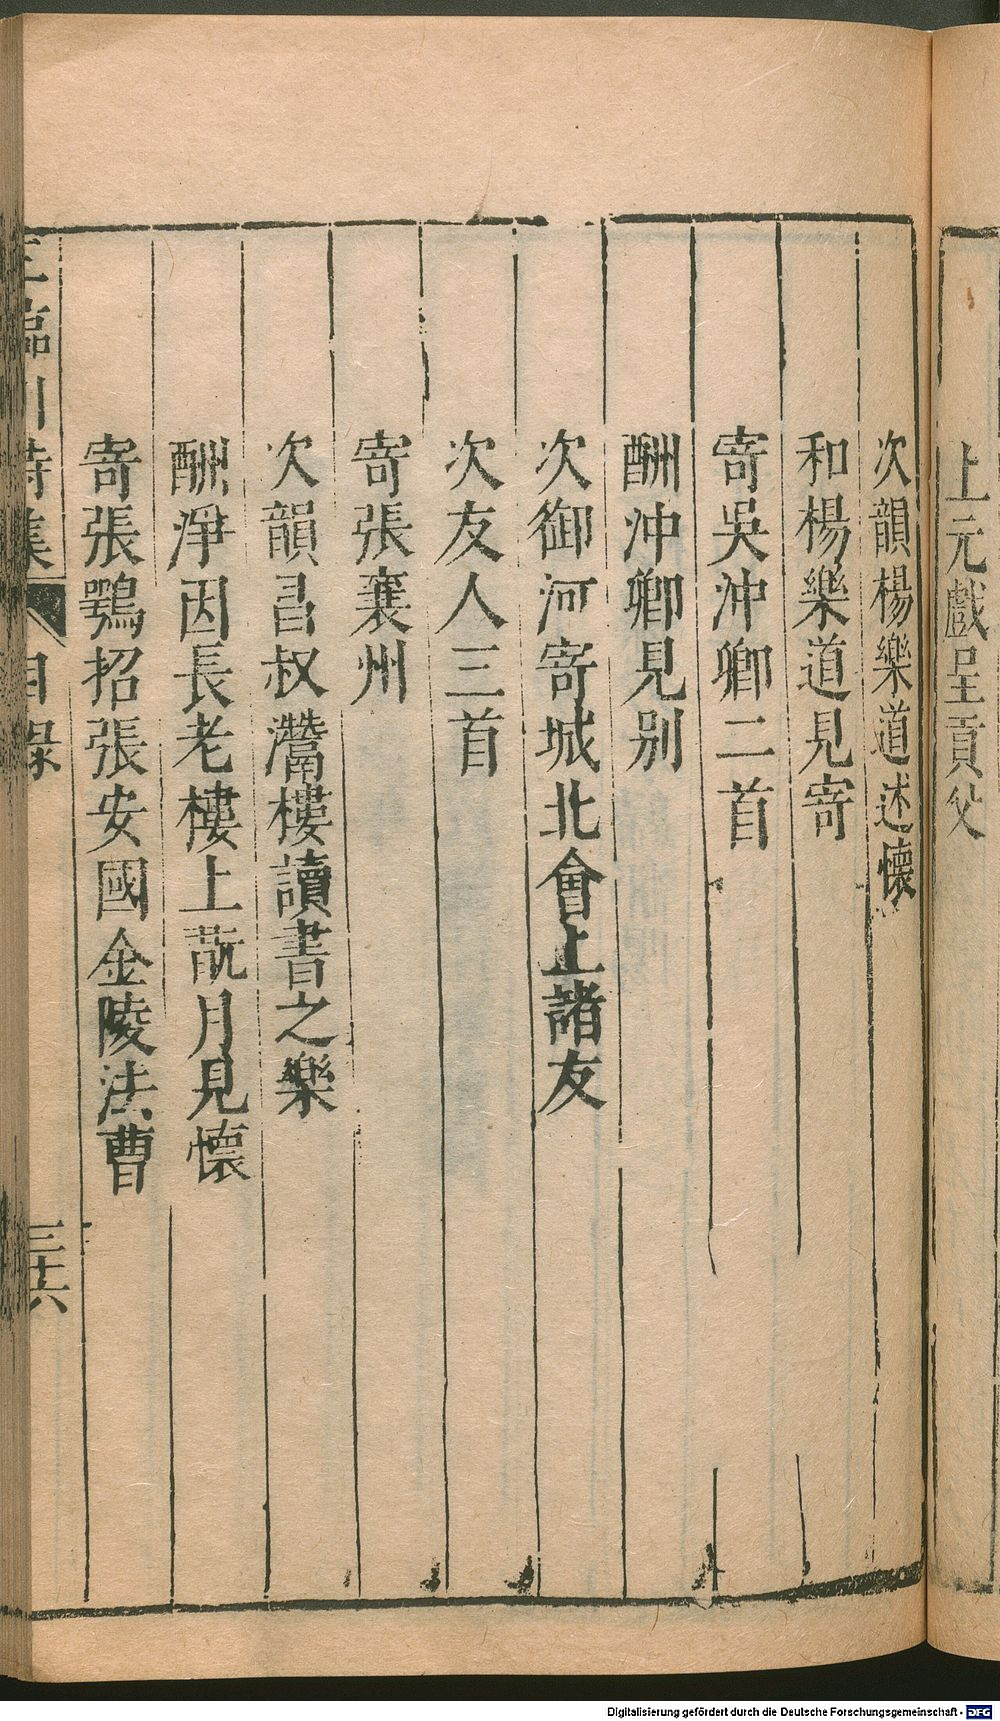 上元戲呈貢父
次韻楊樂道述懷
和楊樂道見寄
寄吳沖卿二首
酬沖卿見別
次御河寄城北會上諸友
次友人三首
寄張襄州
次韻昌叔灊樓讀書之樂
酬淨因長老樓上翫月見懷
寄張鶚招張安國金陵法曹
王臨川詩集 目錄 三十六
Digitalisierung gefördert durch die Deutsche Forschungsgemeinschaft - DFG